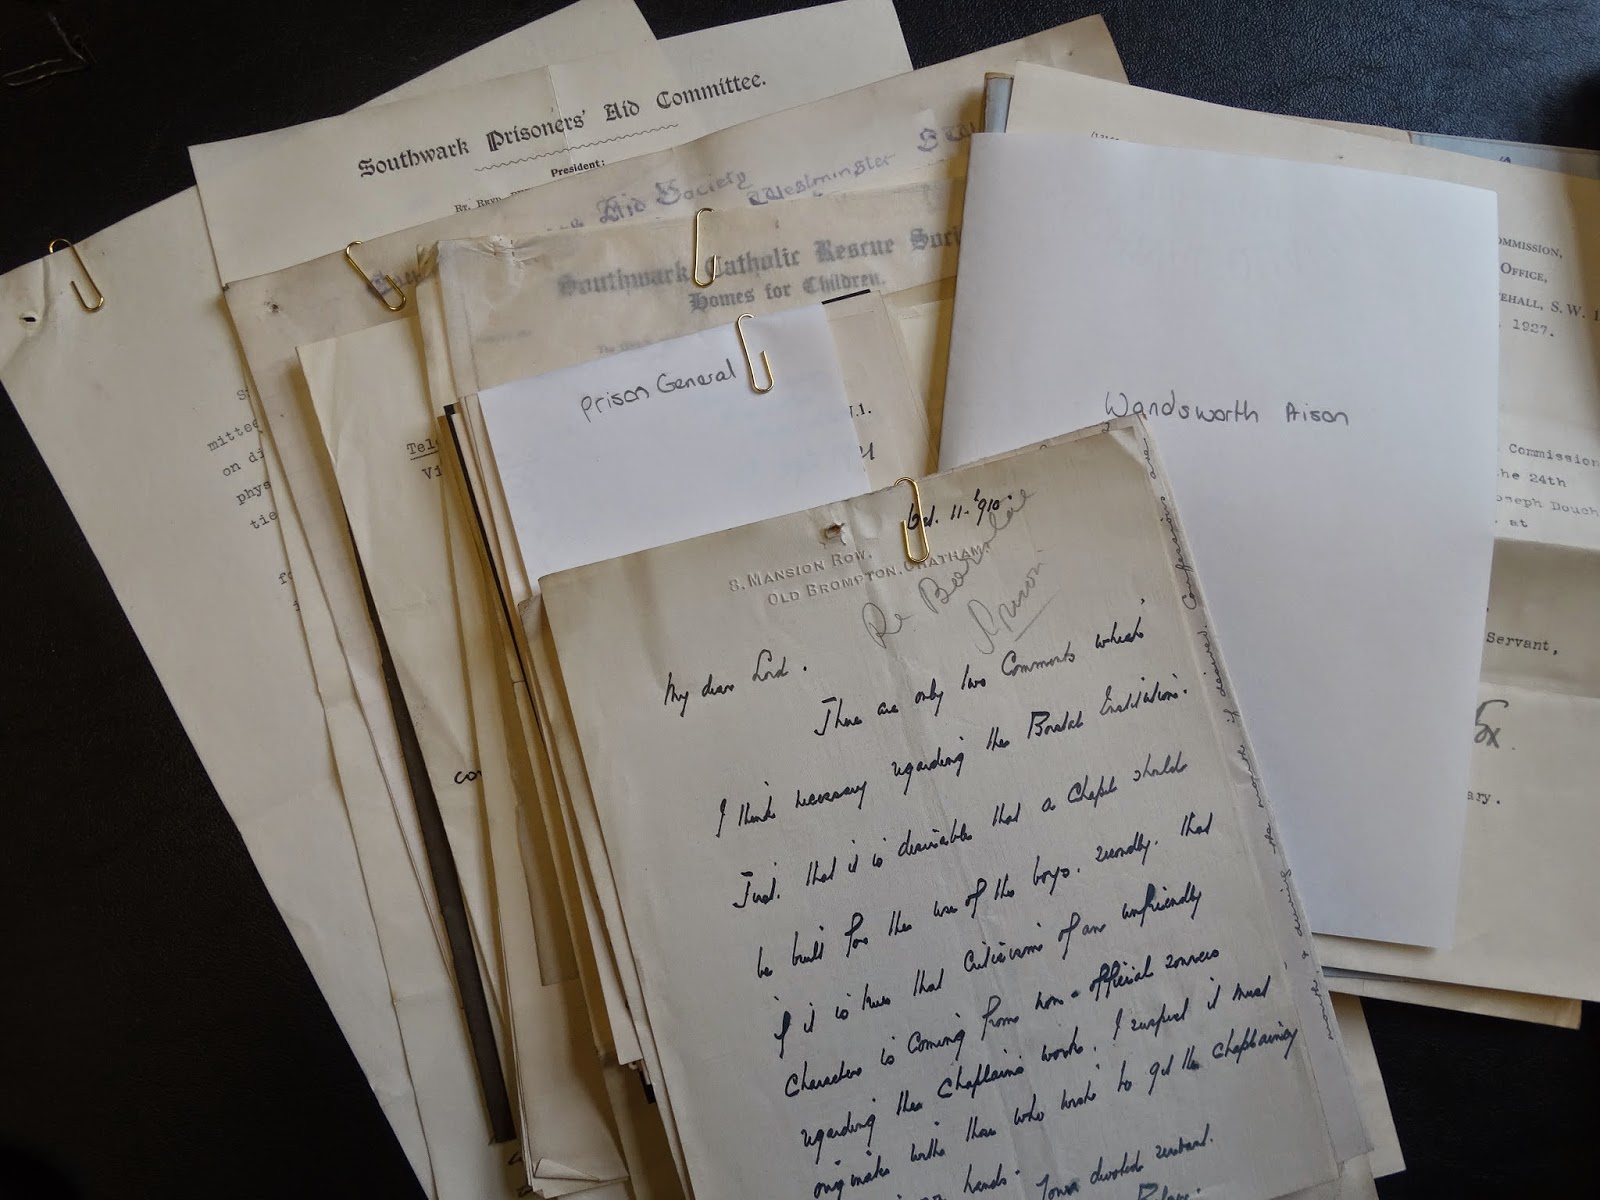 Southwark Prisoners' Aid Committee.
President:
Aid Society
Westminster
Southwark Catholic Rescue Soci
Homes for Children.
prison General
Wandsworth Prison
OMMISSION,
OFFICE,
EHALL, S.W. 1
1927.
Commission
he 24th
oseph Douch
at
Servant,
ary.
mittee
on di
phys
tie
Tel
Vi
W.1.
co
Oct. 11. 1910.
8, MANSION ROW,
OLD BROMPTON, CHATHAM.
Re Borstal
Prison
My dear Lord.
There are only two Comments which
I think necessary regarding the Borstal Institution.
First. that it is desirable that a Chapel should
be built for the use of the boys. Secondly. that
if it is true that Criticism of an unfriendly
Character is Coming from non-official sources
regarding the Chaplain's work. I suspect it must
originate with those who wish to get the Chaplaincy
hands. Your devoted servant.